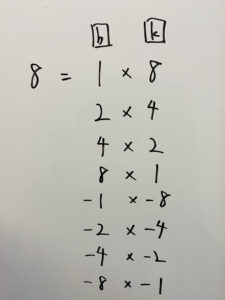 b k
8 = 1 × 8
2 × 4
4 × 2
8 × 1
-1 × -8
-2 × -4
-4 × -2
-8 × -1